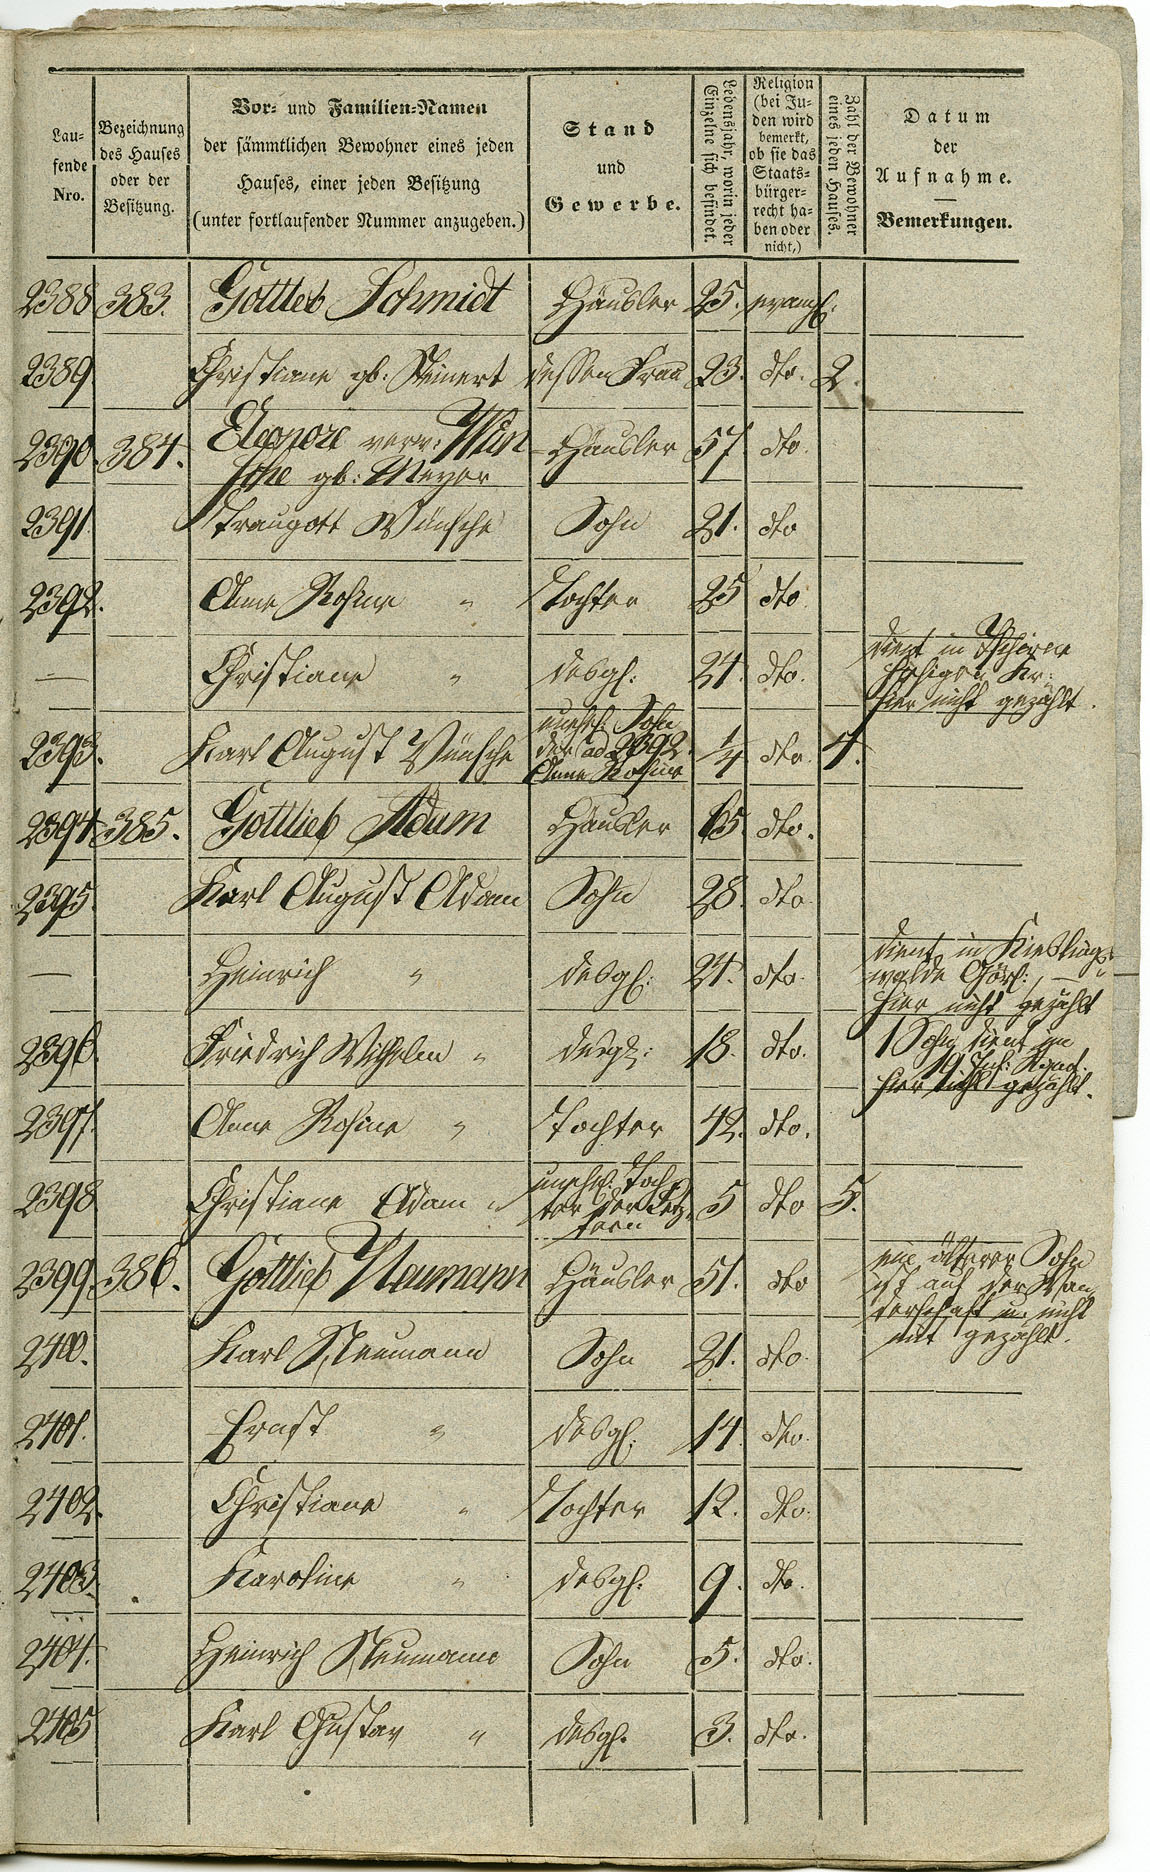 Laufende Nro.
Bezeichnung des Hauses oder der Besitzung.
Vor- und Familien-Namen
der sämmtlichen Bewohner eines jeden
Hauses, einer jeden Besitzung
(unter fortlaufender Nummer anzugeben.)
Stand
und
Gewerbe.
Lebensjahr, worin jeder
Einzelne sich befindet.
Religion
(bei Ju-
den wird
bemerkt,
ob sie das
Staats-
bürger-
recht ha-
ben oder
nicht.)
Zahl der Bewohner
eines jeden Hauses.
Datum
der
Aufnahme.
Bemerkungen.
2388 383. Gottlieb Schmidt Häusler 25. evangl:
2389 Christiane gb: Steinert dessen Frau 23. dto. 2.
2390. 384. Eleonore verw: Wün
sche gb: Meyer Häusler 57. dto.
2391. Traugott Wünsche Sohn 21. dto
2392. Anne Rosine " Tochter 25 dto.
— Christiane " desgl: 24. dto. dient in
hier nicht gezählt.
2393. Karl August Wünsche unehl: Sohn
der ad 2392.
Anne Rosine 1/4 dto. 4.
2394. 385. Gottlieb Adam Häusler 65. dto.
2395. Karl August Adam Sohn 28. dto.
— Heinrich " desgl: 24. dto. dient in Kieslings
walde Görl:
hier nicht gezählt
2396. Friedrich Wilhelm " desgl: 18. dto. 1 Sohn dient im
19 Inf: Regmt.
hier nicht gezählt.
2397. Anne Rosine " Tochter 42. dto.
2398 Christiane Adam " unehl: Toch
ter der Letz
tern 5 dto 5.
2399. 386. Gottlieb Neumann Häusler 51. dto ein älterer Sohn
ist auf der Wan
derschaft u. nicht
mit gezählt.
2400. Karl Neumann Sohn 21. dto.
2401. Ernst " desgl: 14. dto.
2402. Christiane " Tochter 12. dto.
2403. Karoline " desgl. 9. dto.
2404. Heinrich Neumann Sohn 5. dto.
2405 Karl Gustav " desgl. 3. dto.